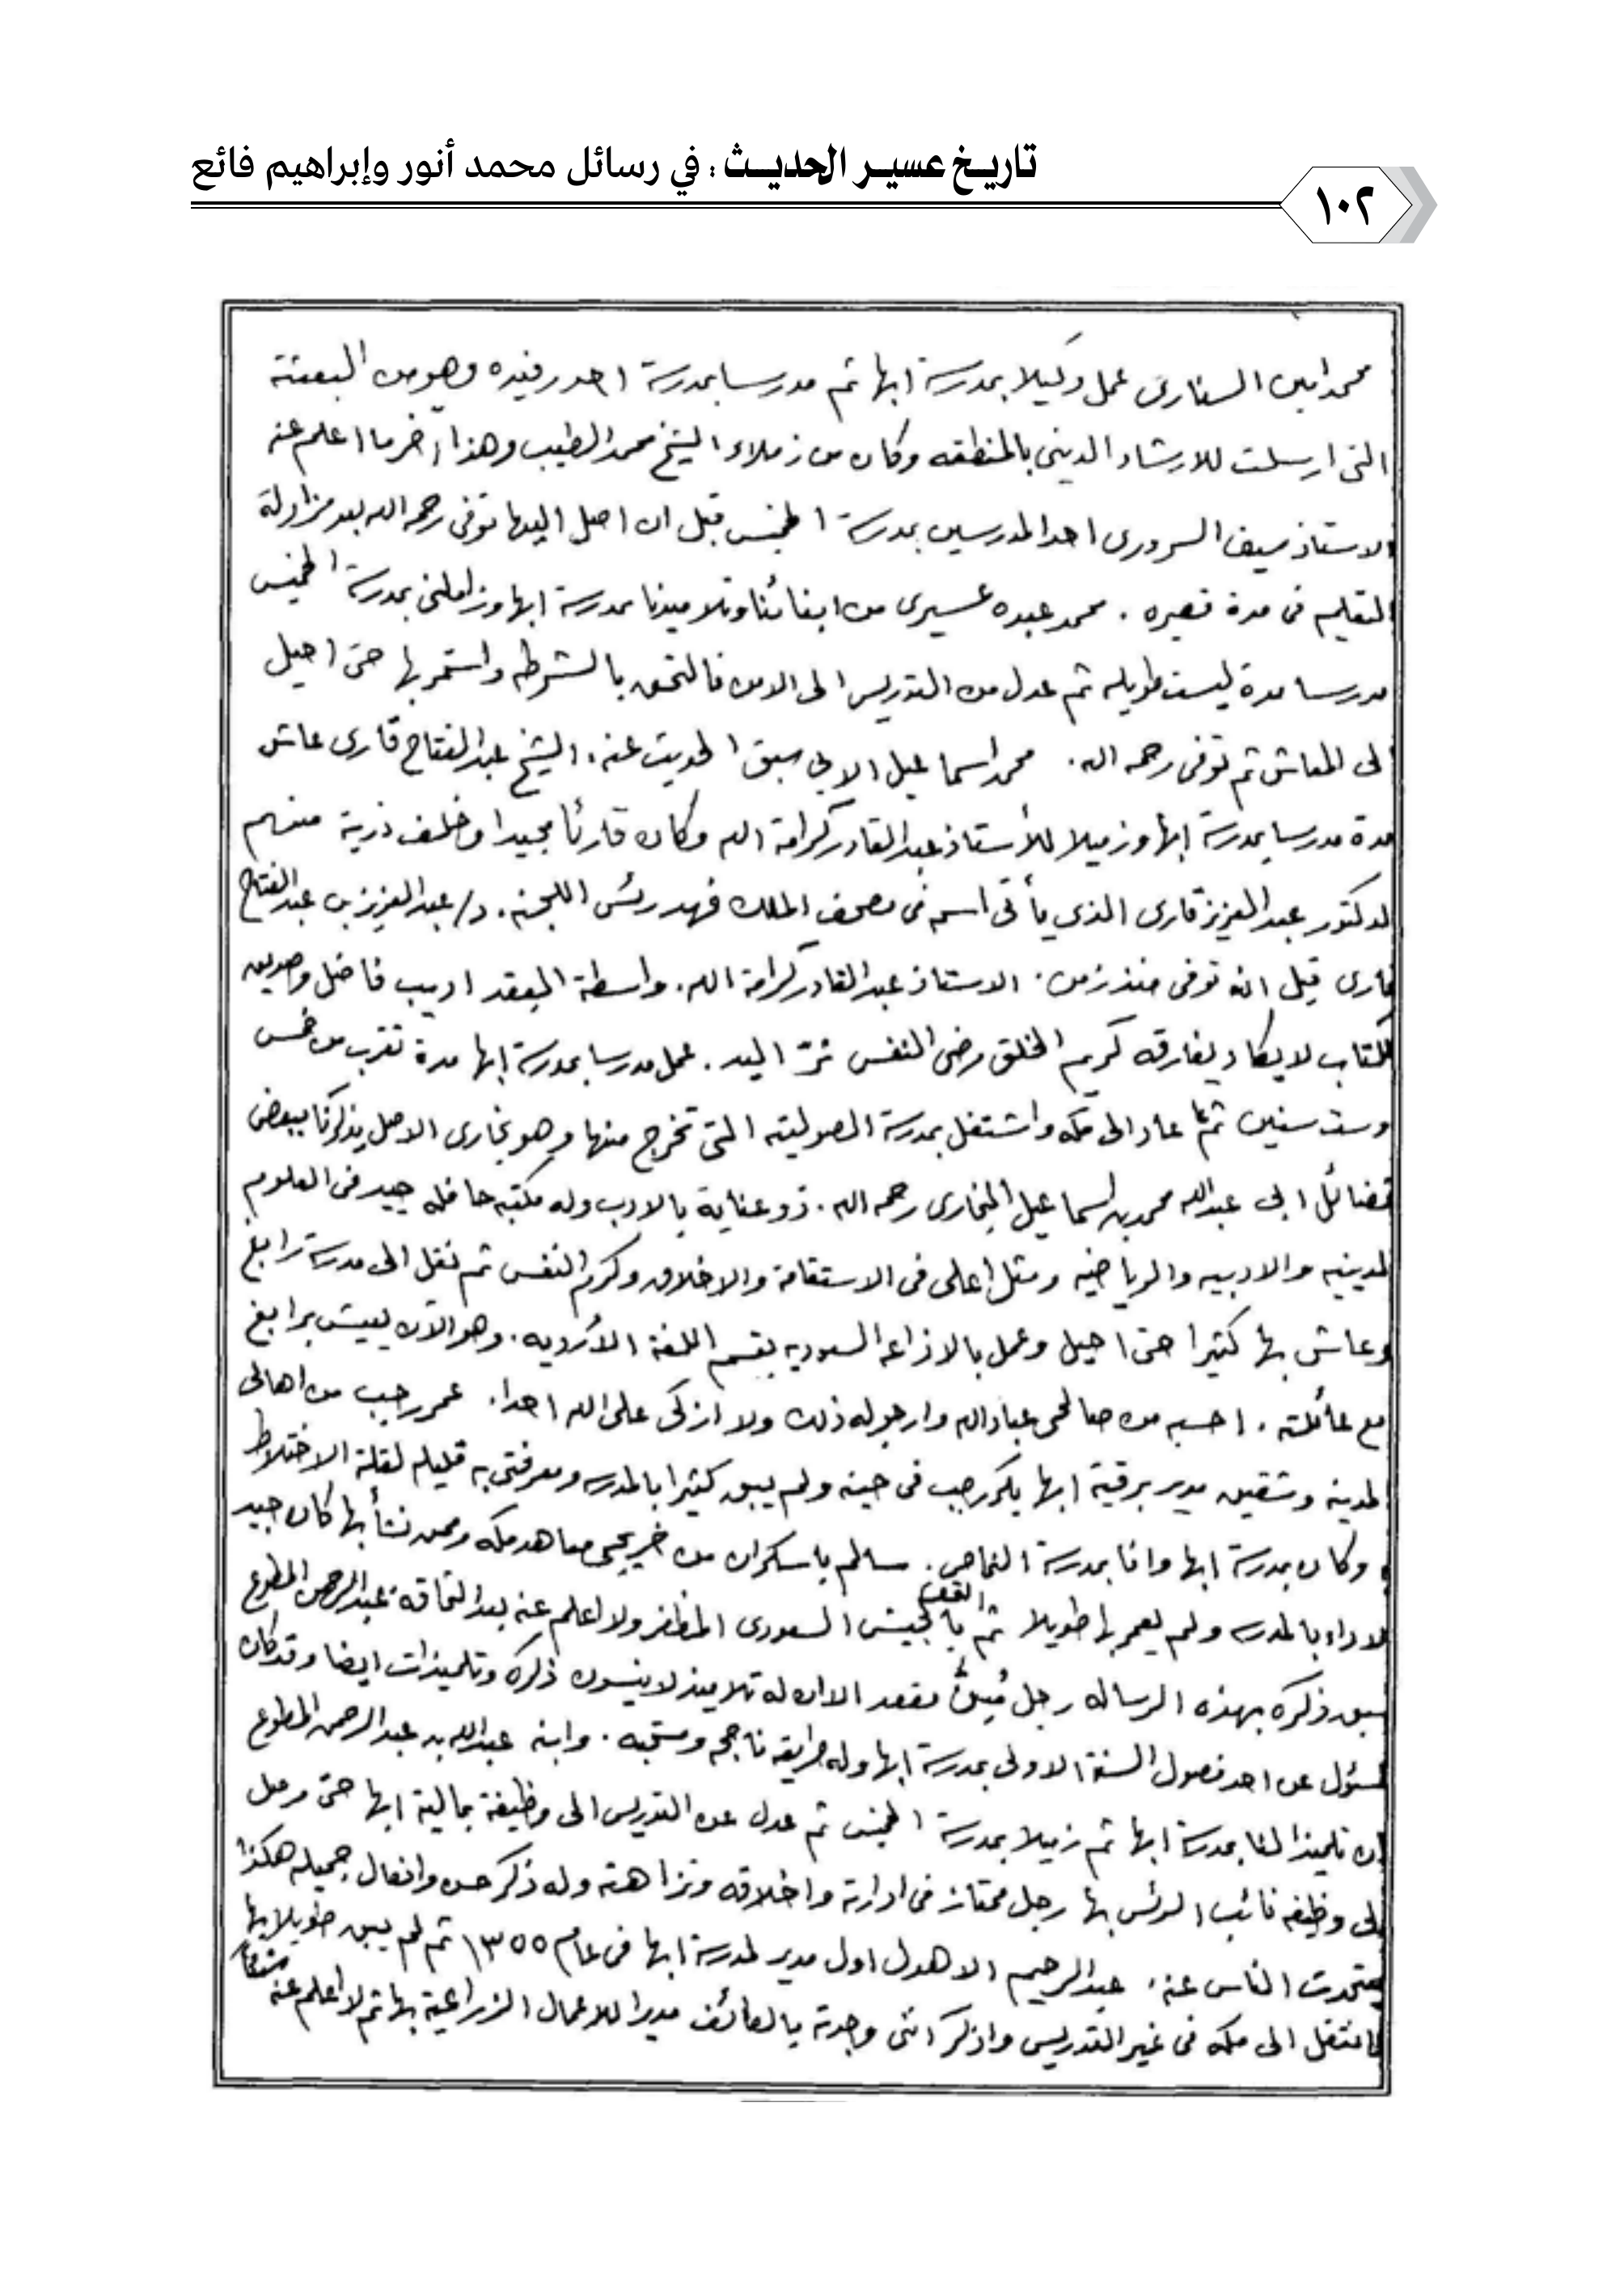 تاريخ عسير الحديث : في رسائل محمد أنور وإبراهيم فائع
١٠٢
محمد امين السنارى عمل وكيلا بمدرسة ابها ثم مدرسا بمدرسة احد رفيده وهو من البعثة
التى ارسلت للارشاد الدينى بالمنطقه وكان من زملاء الشيخ محمد الطيب وهذا آخر ما اعلم عنه
الاستاذ سيف السرورى احد المدرسين بمدرسة الخميس قبل ان اصل اليها توفى رحمه الله بعد مزاولة
التعليم فى مدة قصيره . محمد عبده عسيرى من ابنائنا وتلاميذنا بمدرسة ابها وزاملنى بمدرسة الخميس
مدرسا مدة ليست طويله ثم عدل من التدريس الى الامن فالتحق بالشرطه واستمر بها حتى احيل
الى المعاش ثم توفى رحمه الله . محمد اسماعيل الابى سبق الحديث عنه . الشيخ عبد الفتاح قارى عاش
مدة مدرسا بمدرسة ابها وزميلا للأستاذ عبد القادر كرامة الله وكان قارئا مجيدا وخلف ذرية منهم
الدكتور عبد العزيز قارى الذي يأتى اسمه فى مصحف الملك فهد رئس اللجنه . د/ عبد العزيز بن عبد الفتاح
قارى قيل انه توفى منذ زمن . الاستاذ عبد القادر كرامة الله . واسطة العقد اديب فاضل وصديق
للكتاب لا يكاد يفارقه كريم الخلق رضى النفس ثرّ اليد . عمل مدرسا بمدرسة ابها مدة تقرب من خمس
وست سنين ثم عاد الى مكه واشتغل بمدرسة الصولتيه التى تخرج منها وهو بخارى الاصل يذكرنا ببعض
فضائل ابى عبد الله محمد بن اسماعيل البخارى رحمه الله . ذو عناية بالادب وله مكتبه حافله جيد فى العلوم
الدينيه والادبيه والرياضيه ومثل اعلى فى الاستقامة والاخلاق وكرم النفس ثم نقل الى مدرسة رابغ
وعاش بها كثيرا حتى احيل وعمل بالاذاعه السعوديه بقسم اللغة الأرديه . وهو الآن يعيش برابغ
مع عائلته . احسبه من صالحى عباد الله وارجو له ذلك ولا ازكى على الله احدا . عمر رجب من اهالى
المدينه وشقيق مدير برقية ابها بكر رجب فى حينه ولم يبق كثيرا بالمدرسه ومعرفتى به قليله لقلة الاختلاط
وكان بمدرسة ابها وانا بمدرسة النماص . سالم باسكران من خريجى معاهد مكه وممن نشأ بها كان جيد
الاداء بالمدرسه ولم يعمر بها طويلا ثم التحق بالجيش السعودى المظفر ولا اعلم عنه بعد التحاقه . عبد الرحمن المطوع
سبق ذكره بهذه الرساله رجل مُسِنٌّ مقعد الا ان له تلاميذ لا ينسون ذكره وتلميذات ايضا وقد كان
مسئول عن احد فصول السنة الاولى بمدرسة ابها وله طريقه ناجحه ومستحبه . وابنه عبد الله بن عبد الرحمن المطوع
كان تلميذا لنا بمدرسة ابها ثم زميلا بمدرسة الخميس ثم عدل عن التدريس الى وظيفة بمالية ابها حتى وصل
الى وظيفه نائب الرئس بها رجل ممتاز فى ادارته واخلاقه ونزاهته وله ذكر حسن وافعال جميله هكذا
يتحدث الناس عنه . عبد الرحيم الاهدل اول مدير لمدرسة ابها فى عام ١٣٥٥ ثم لم يبق طويلا بها
فانتقل الى مكه فى غير التدريس واذكر اننى وجدته بالطائف مديرا للاعمال الزراعية بها ثم لا اعلم عنه شيئا